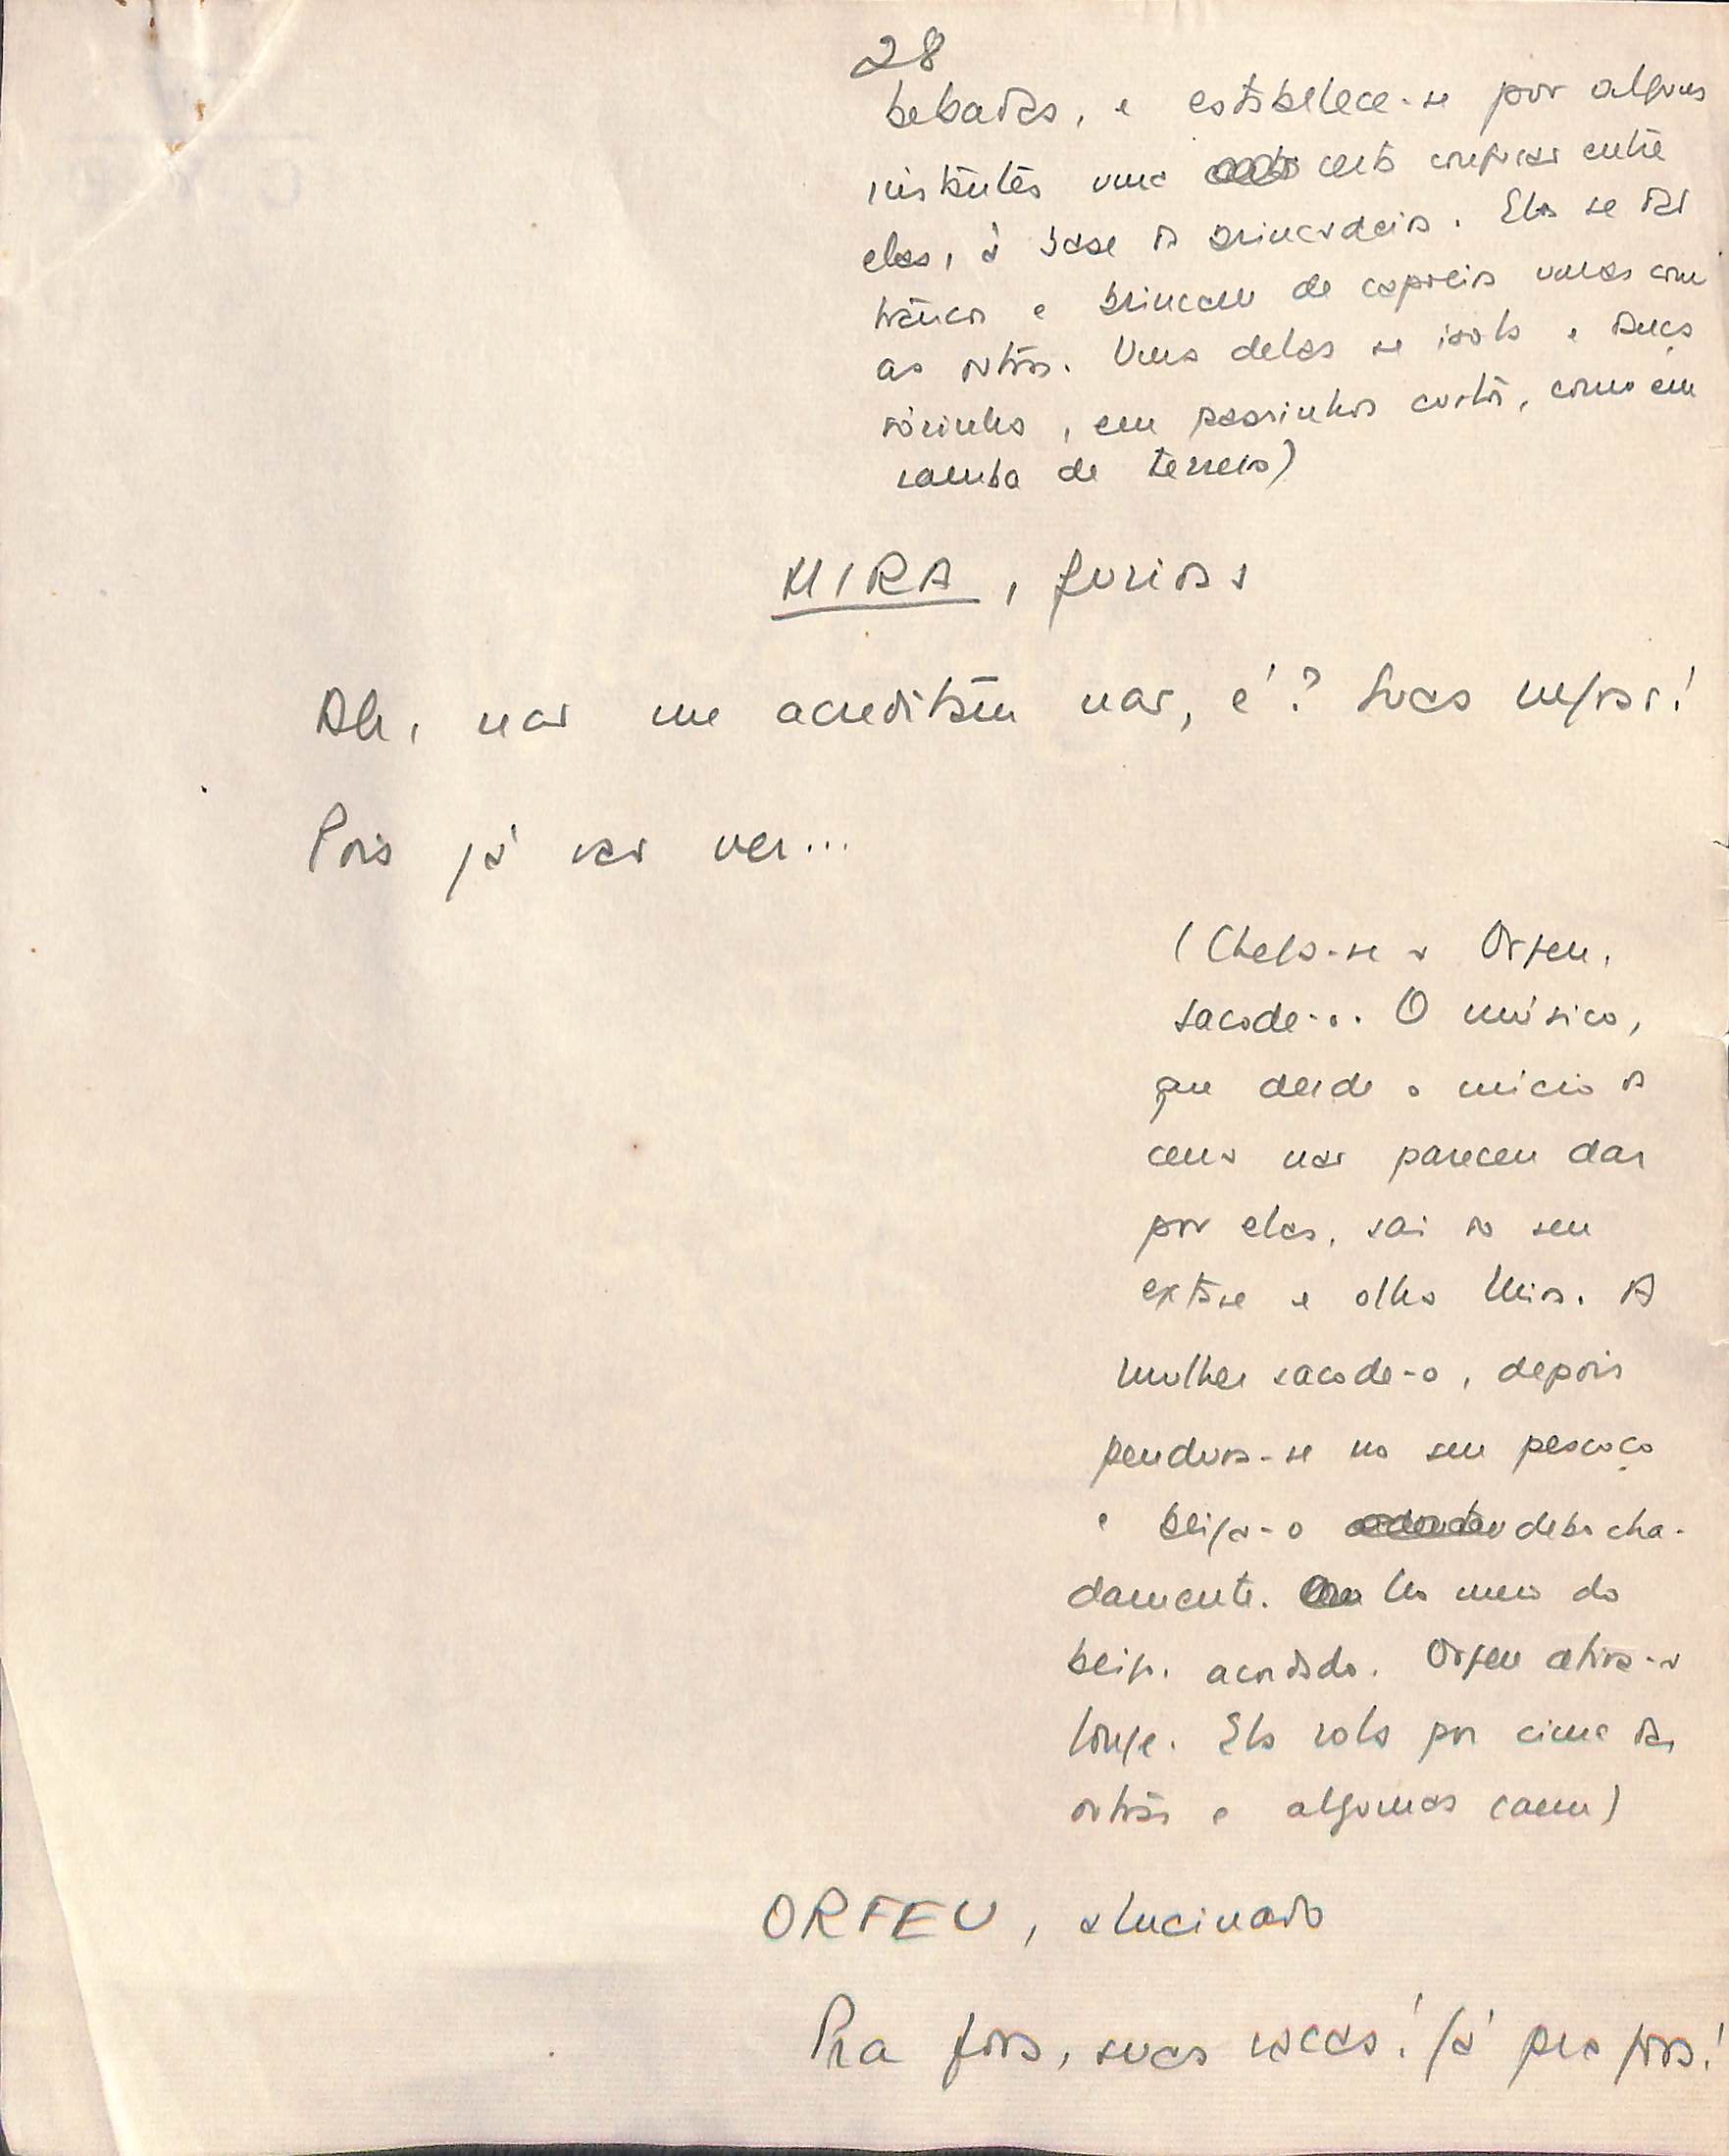 28
bebadas, e estabelece-se por alguns
instantes uma certa confusão entre
elas, à base da brincadeira. Elas se dão
tranco e brincam de capoeira umas com
as outras. Uma delas se isola e dança
sòzinha, em passinhos curtos, como em
samba de terreiro)
MIRA, furiosa
Ah, não me acreditam não, é? Suas
Pois já vão ver...
(Chega-se a Orfeu,
sacode-o. O músico,
que desde o início da
cena não pareceu dar
por elas, sai do seu
extase e olha Mira. A
mulher sacode-o, depois
pendura-se no seu pescoço
e beija-o debocha-
damente. No meio do
beijo, acordado. Orfeu atira-a
longe. Ela rola por cima das
outras e algumas caem)
ORFEU, alucinado
Pra fora, suas vacas! Já pra fora!